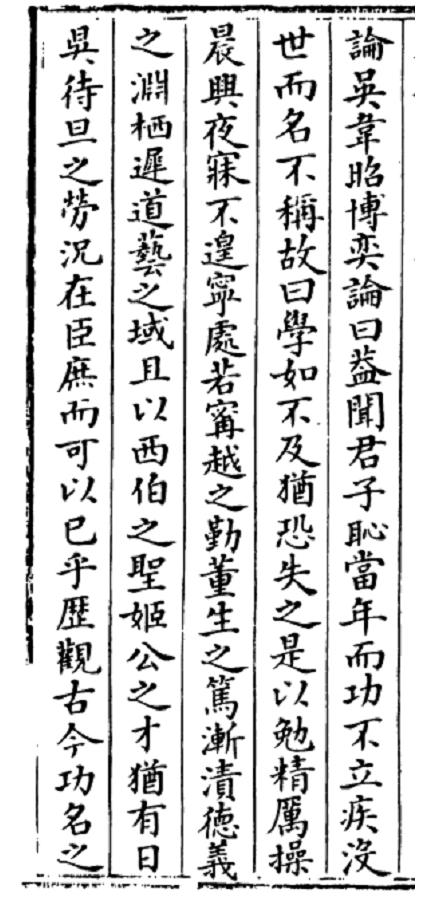 論吳韋昭博奕論曰葢聞君子恥當年而功不立疾沒
世而名不稱故曰學如不及猶恐失之是以勉精厲操
晨興夜寐不遑寧處若甯越之勤董生之篤漸漬德義
之淵栖遲道藝之域且以西伯之聖姬公之才猶有日
昃待旦之勞況在臣庶而可以已乎歴觀古今功名之